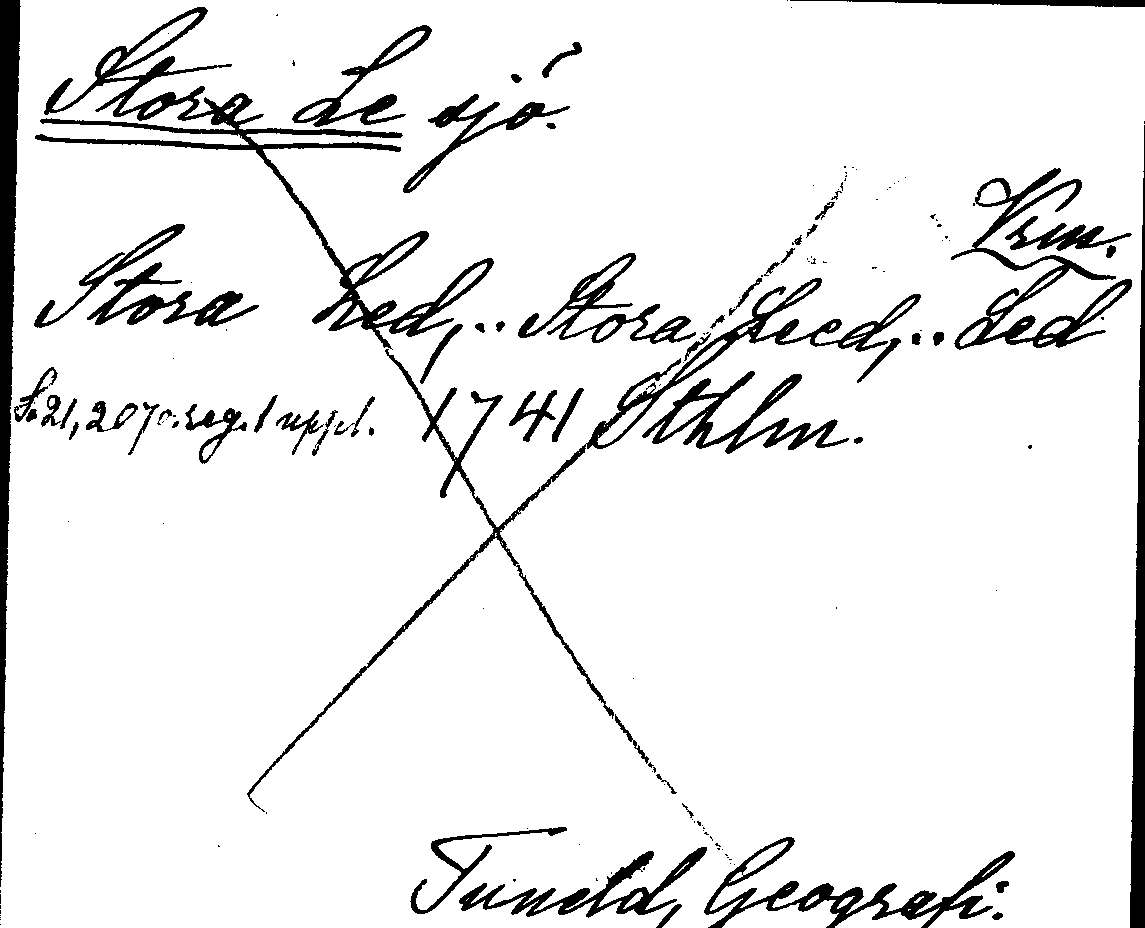 Stora Le sjö.
Vrm.
Stora Led,.. Stora Leed,.. Led
S. 21, 207 o. reg. 1 uppl. 1741 Sthlm.
Tuneld, Geografi.